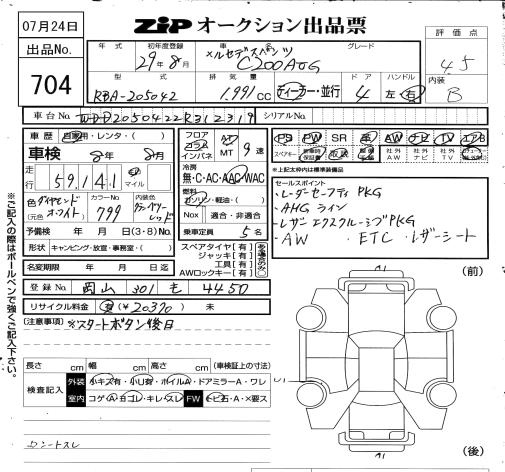 07月24日
ZiP オークション出品票
出品No.
704
年式 初年度登録 車名 グレード
29年8月 メルセデスベンツ C200AVG
評価点
4.5
型式 排気量 ドア ハンドル
RBA-205042 1,991cc ディーラー・並行 4 左・右
内装
B
車台No. WDD2050422R312319 シリアルNo.
車歴 自家用・レンタ・( )
車検 8年8月
走行 59,141 km マイル
色 ダイヤモンドホワイト
(元色)
カラーNo. 799
内装色
レッド
予備検 年 月 日(3・8)No.
形状 キャンピング・放宣・事務室・( )
名変期限 年 月 日迄
フロア コラム インパネ
AT MT 9速
冷房
無・C・AC・AAC・WAC
燃料
ガソリン・軽油・( )
Nox 適合・非適合
乗車定員 5名
スペアタイヤ[有]
ジャッキ[有]
工具[有]
AWロックキー[有]
PS PW SR 革 AW ナビ TV エアB
スペアキー 新車時保証書 取説 記録簿 社外AW 社外ナビ 社外TV
*上記文字枠内は標準装備品
セールスポイント
・レーダーセーフティPKG
・AMGライン
・レザーエクスクルーシブPKG
・AW ・ETC ・レザーシート
登録No. 岡山 301 も 4450
リサイクル料金 済(¥20370) 未
(注意事項) ※スタートボタン後日
(前)
(後)
長さ cm 幅 cm 高さ cm (車検証上の寸法)
検査記入 外装 小キズ有・小U有・ホイルA・ドアミラーA・ワレ
室内 コゲA・ヨゴレ・キレ・スレ FW トビ石・A・×要ス
シートスレ
※ご記入の際はボールペンで強くご記入下さい。